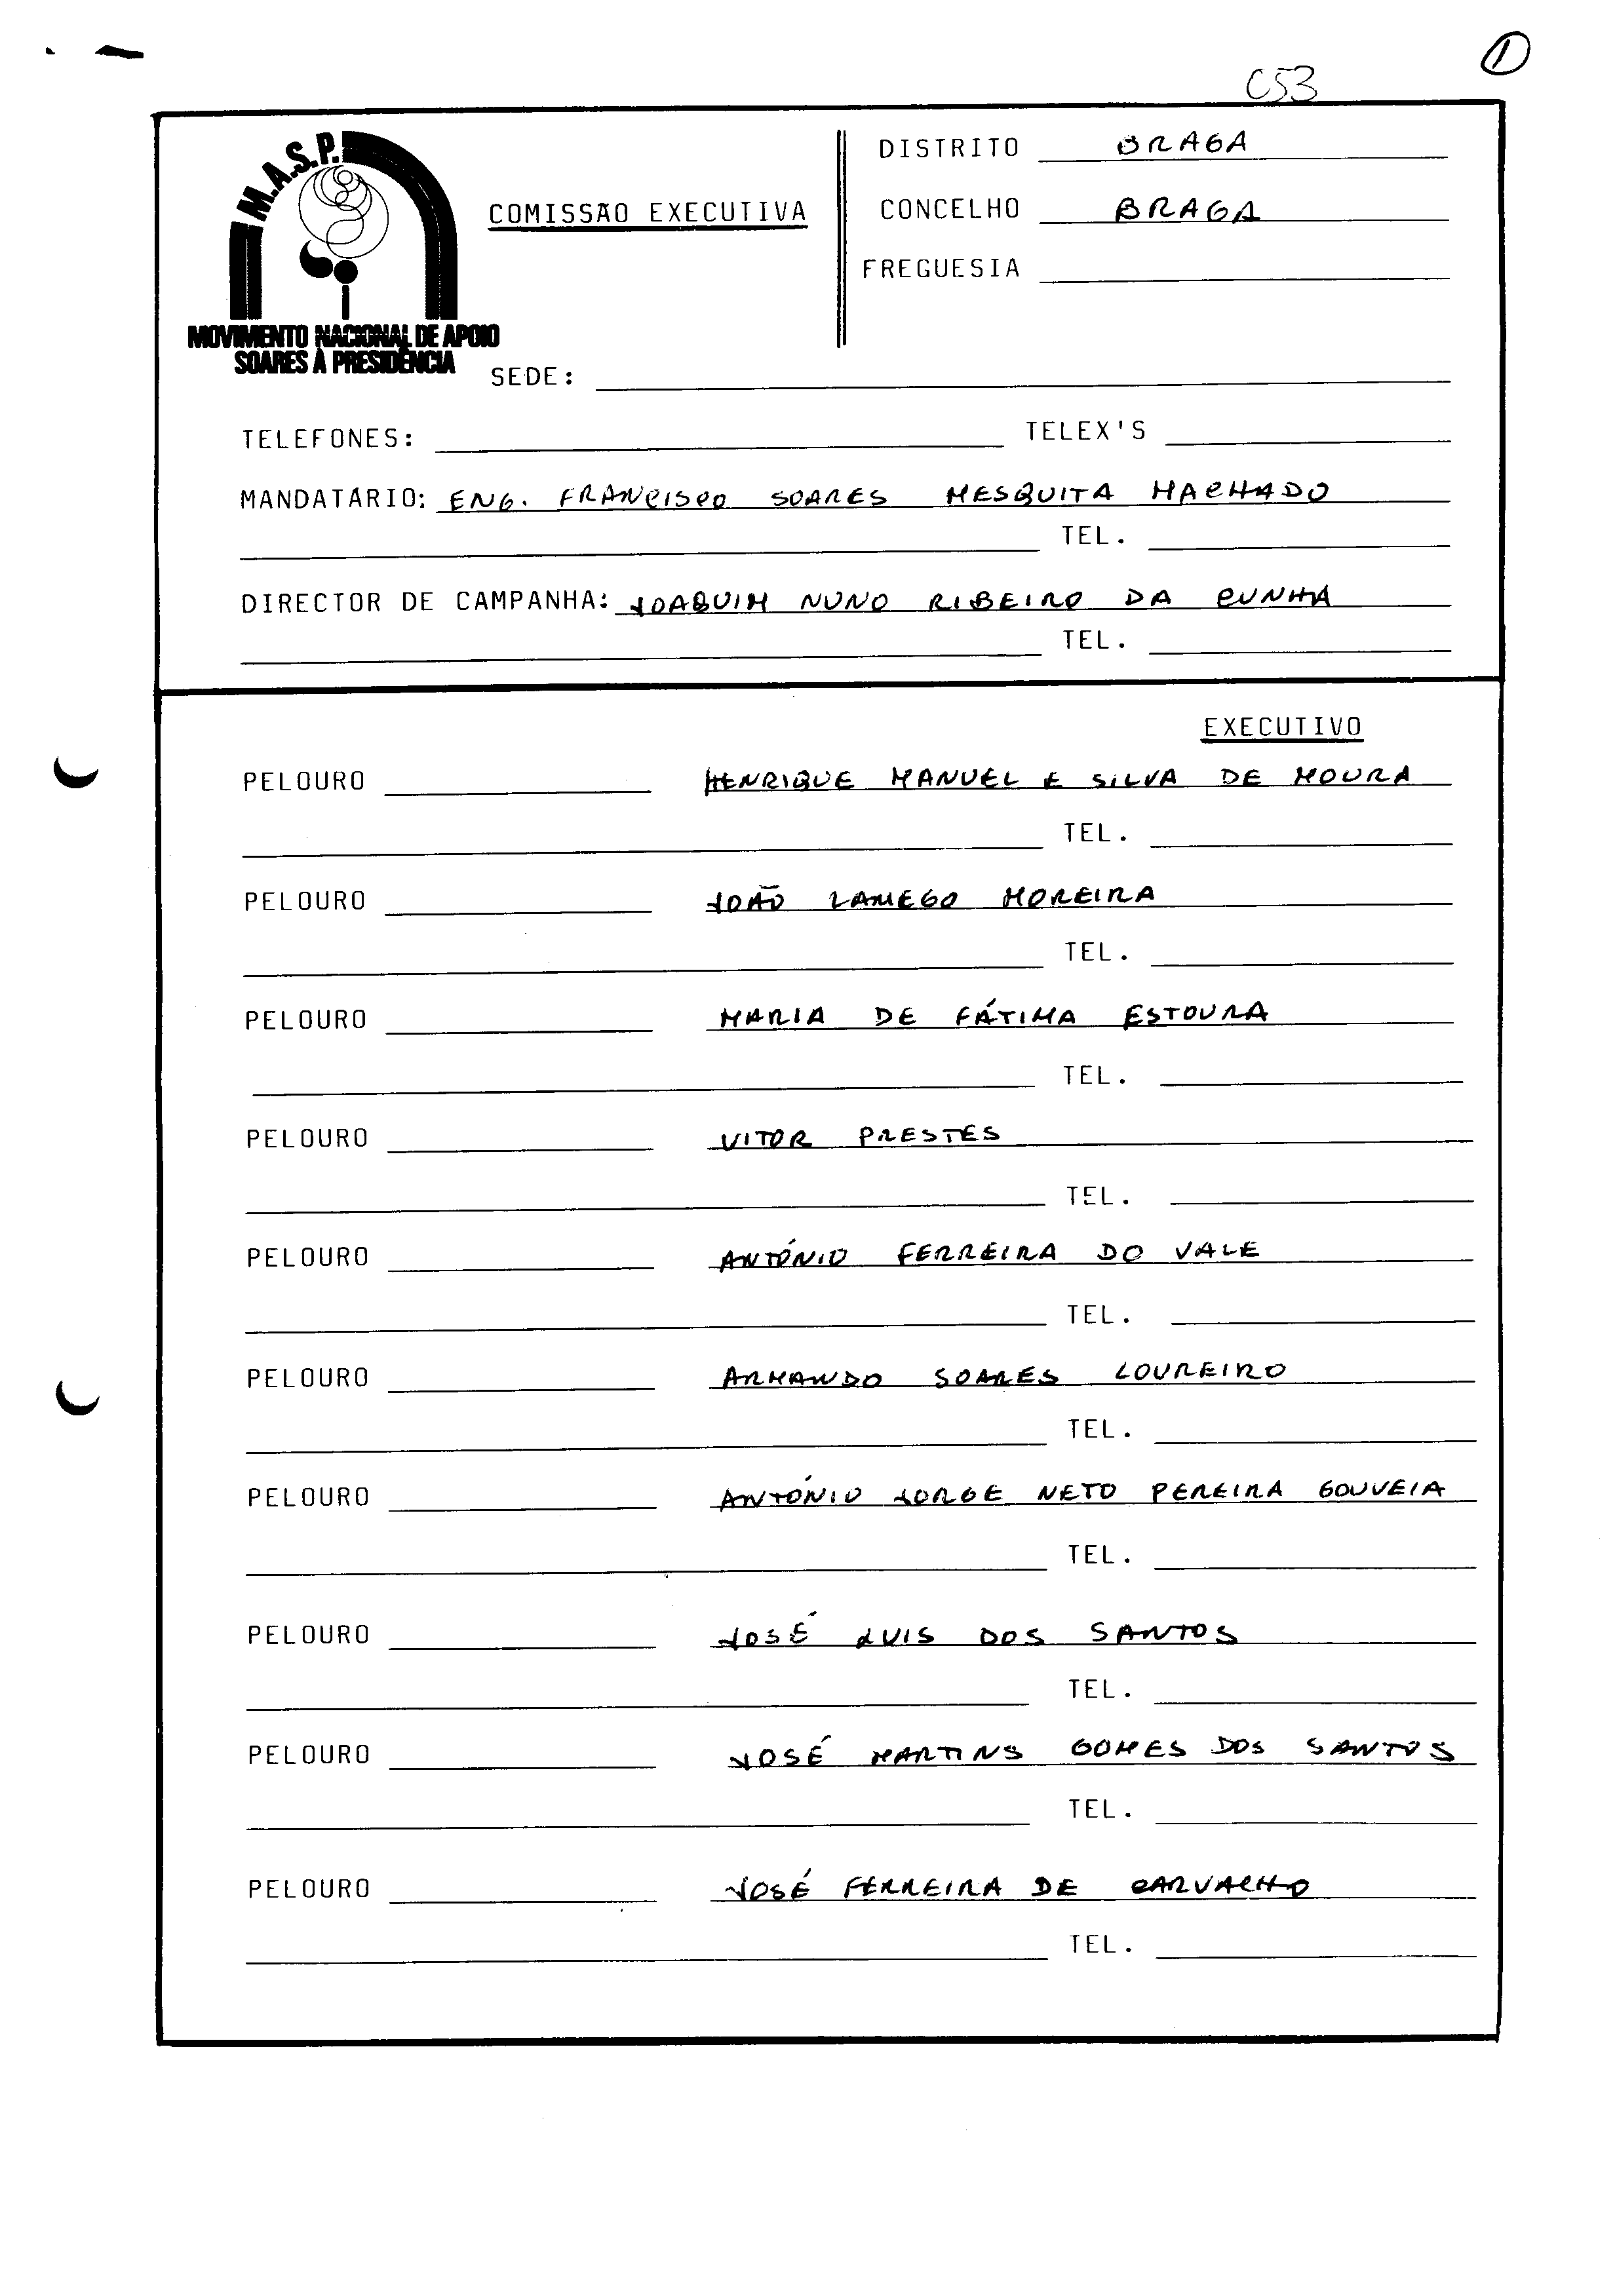 1
C53
M.A.S.P.
MOVIMENTO NACIONAL DE APOIO
SOARES À PRESIDÊNCIA
COMISSÃO EXECUTIVA
DISTRITO BRAGA
CONCELHO BRAGA
FREGUESIA
SEDE:
TELEFONES: TELEX'S
MANDATÁRIO: ENG. FRANCISCO SOARES MESQUITA MACHADO
TEL.
DIRECTOR DE CAMPANHA: JOAQUIM NUNO RIBEIRO DA CUNHA
TEL.
EXECUTIVO
PELOURO HENRIQUE MANUEL E SILVA DE MOURA
TEL.
PELOURO JOÃO LAMEGO MOREIRA
TEL.
PELOURO MARIA DE FÁTIMA ESTOURA
TEL.
PELOURO VITOR PRESTES
TEL.
PELOURO ANTÓNIO FERREIRA DO VALE
TEL.
PELOURO ARMANDO SOARES LOUREIRO
TEL.
PELOURO ANTÓNIO JORGE NETO PEREIRA GOUVEIA
TEL.
PELOURO JOSÉ LUIS DOS SANTOS
TEL.
PELOURO JOSÉ MARTINS GOMES DOS SANTOS
TEL.
PELOURO JOSÉ FERREIRA DE CARVALHO
TEL.